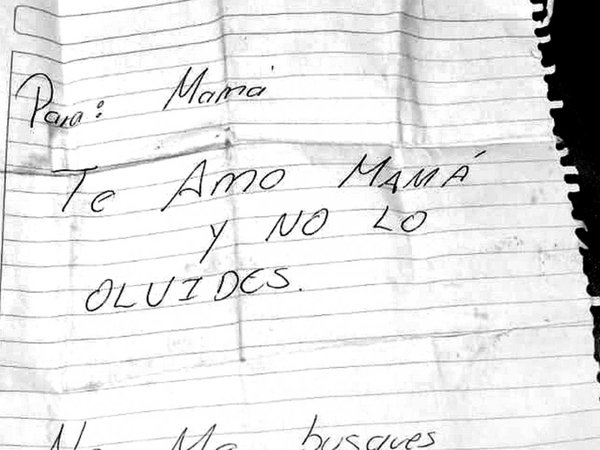 Para: Mamá
Te AMO MAMÁ
Y NO LO
OLVIDES.
No Me busques